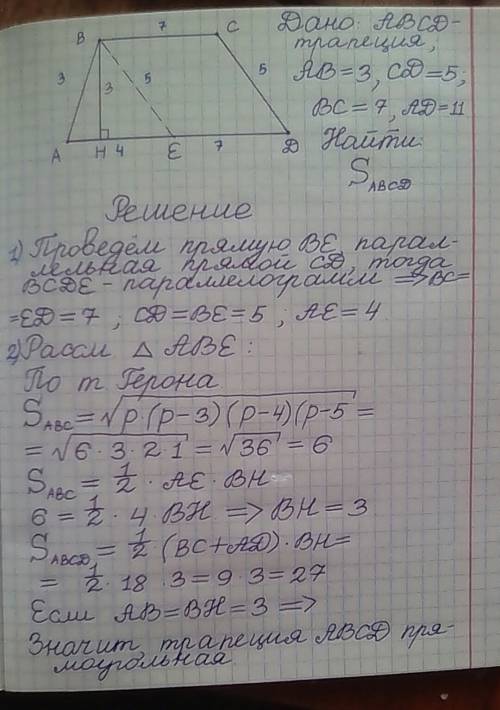 B 7 C
3 3 5 5
A H 4 E 7 D
Дано: ABCD-
трапеция,
AB=3, CD=5;
BC=7, AD=11
Найти:
S_ABCD
Решение
1) Проведём прямую BE, парал-
лельная прямой CD, тогда
BCDE - параллелограмм => BC=
=ED=7 ; CD=BE=5 ; AE=4.
2) Рассм △ ABE:
По т Герона
S_ABC = √p·(p-3)(p-4)(p-5 =
= √6·3·2·1 = √36 = 6
S_ABC = 1/2 · AE · BH
6 = 1/2 · 4 · BH => BH = 3
S_ABCD = 1/2 · (BC+AD)·BH=
= 1/2 · 18 · 3 = 9·3 = 27
Если AB=BH=3 =>
Значит трапеция ABCD пря-
моугольная